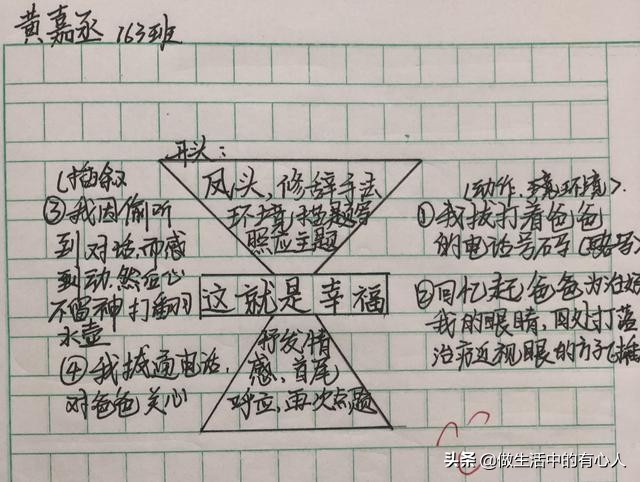 黄嘉丞 163班
开头:
凤头,修辞手法
环境描写
照应主题
(插叙
③我因偷听
到对话,而感
到动.然后心
不留神打翻
水壶
④我拨通电话,
对爸爸关心
这就是幸福
抒发情
感,首尾
呼应,再次点题
(动作、环境).
①我拨打着爸爸
的电话号码(略写)
②回忆起爸爸为治
我的眼睛,四处打
治疗近视眼的方子
头条 @做生活中的有心人